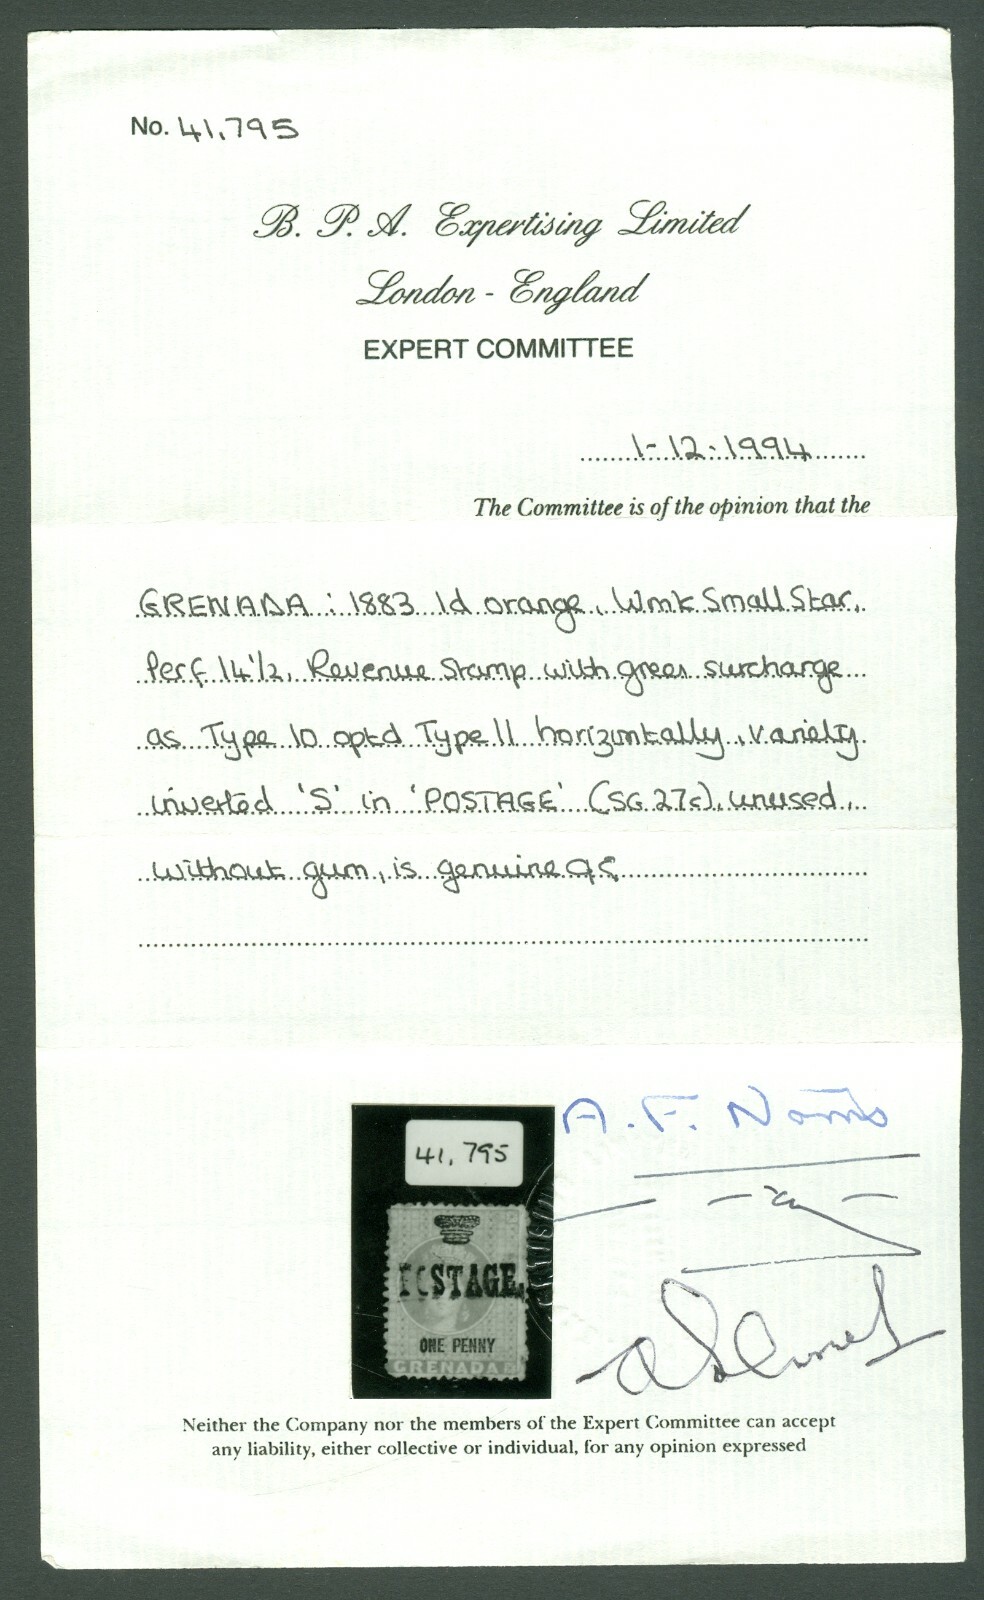 No. 41,795
B. P. A. Expertising Limited
London - England
EXPERT COMMITTEE
1-12-1994
The Committee is of the opinion that the
GRENADA : 1883 1d orange, Wmk Small Star,
Perf 14½, Revenue Stamp with green surcharge
as Type 10 optd Type 11 horizontally, variety
inverted 'S' in 'POSTAGE' (SG 27c), unused,
without gum, is genuine
41,795
POSTAGE
ONE PENNY
GRENADA
A. F. Norris
Neither the Company nor the members of the Expert Committee can accept
any liability, either collective or individual, for any opinion expressed